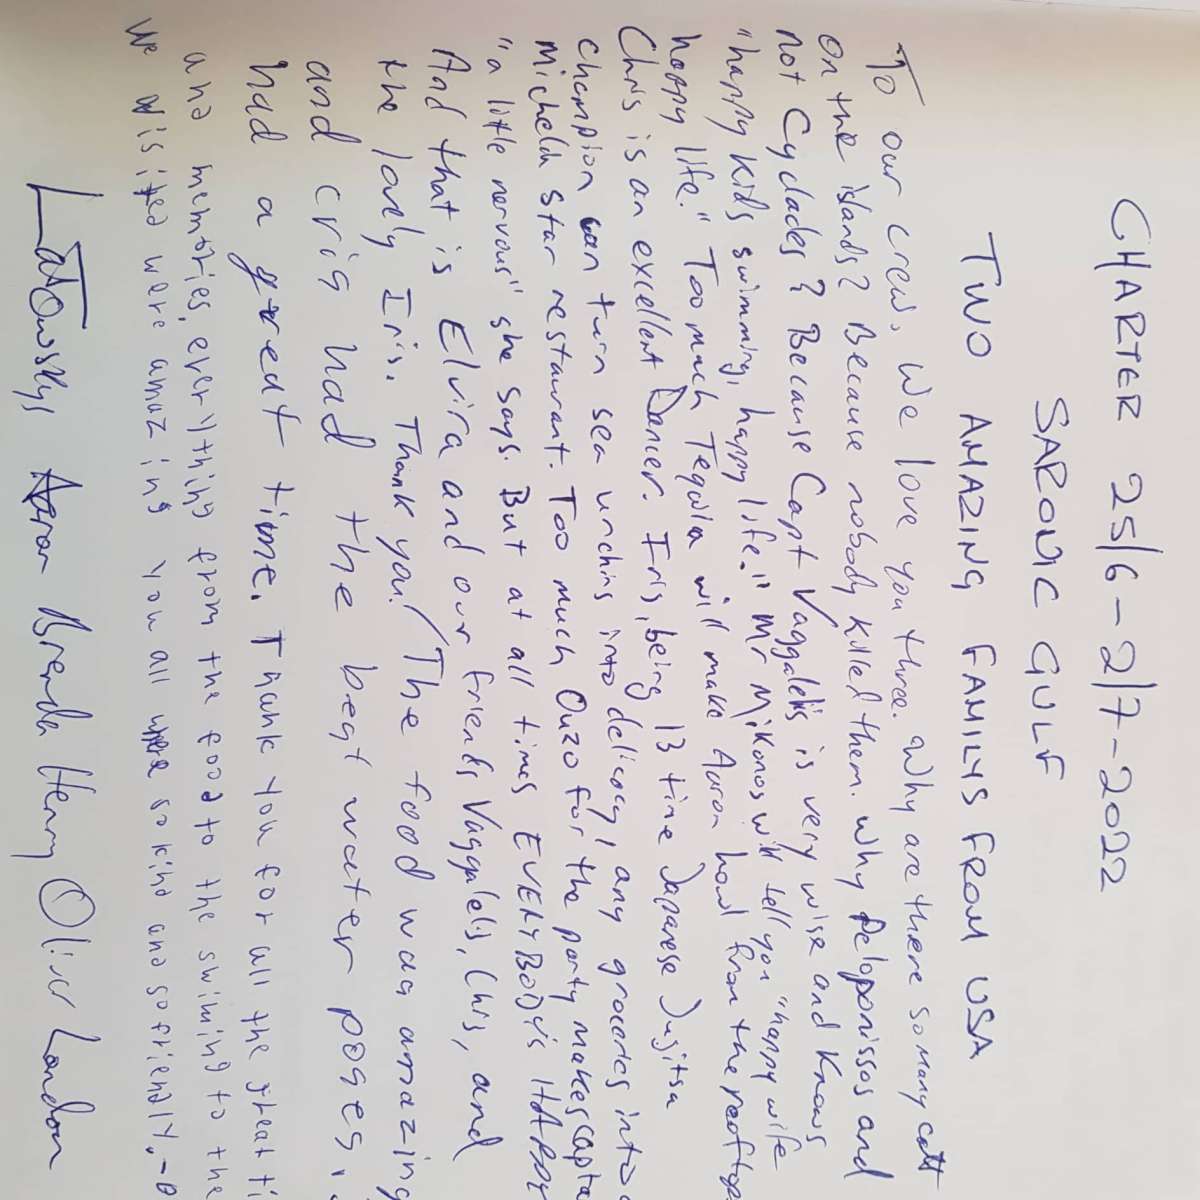 CHARTER 25/6-2/7-2022
SARONIC GULF
TWO AMAZING FAMILYS FROM USA
To our crew, We love you three. Why are there so many catt
on the islands? Because nobody killed them. Why Peloponissos and
not Cyclades? Because Capt Vaggalelis is very wise and knows
"happy kids swimming, happy life." Mr Mikonos will tell you "happy wife
happy life." Too much Tequila will make Aaron howl from the rooftop
Chris is an excellent Dancer. Iris, being 13 time Japanese Jujitsu
champion can turn sea urchins into delicacy, any groceries into
Michelin star restaurant. Too much Ouzo for the party makes capta
"a little nervous" she says. But at all times EVERYBODY is HAPPY
And that is Elvira and our friends Vaggelis, Chis, and
the lovely Iris. Thank you! The food was amazing
and cris had the best water poses.
had a great time. Thank you for all the great ti
and memories, everything from the food to the swiming to the
We wisited were amazing you all were so kind and so friendly. -O
Latowsky, Aaron Brenda Henry Oliver London